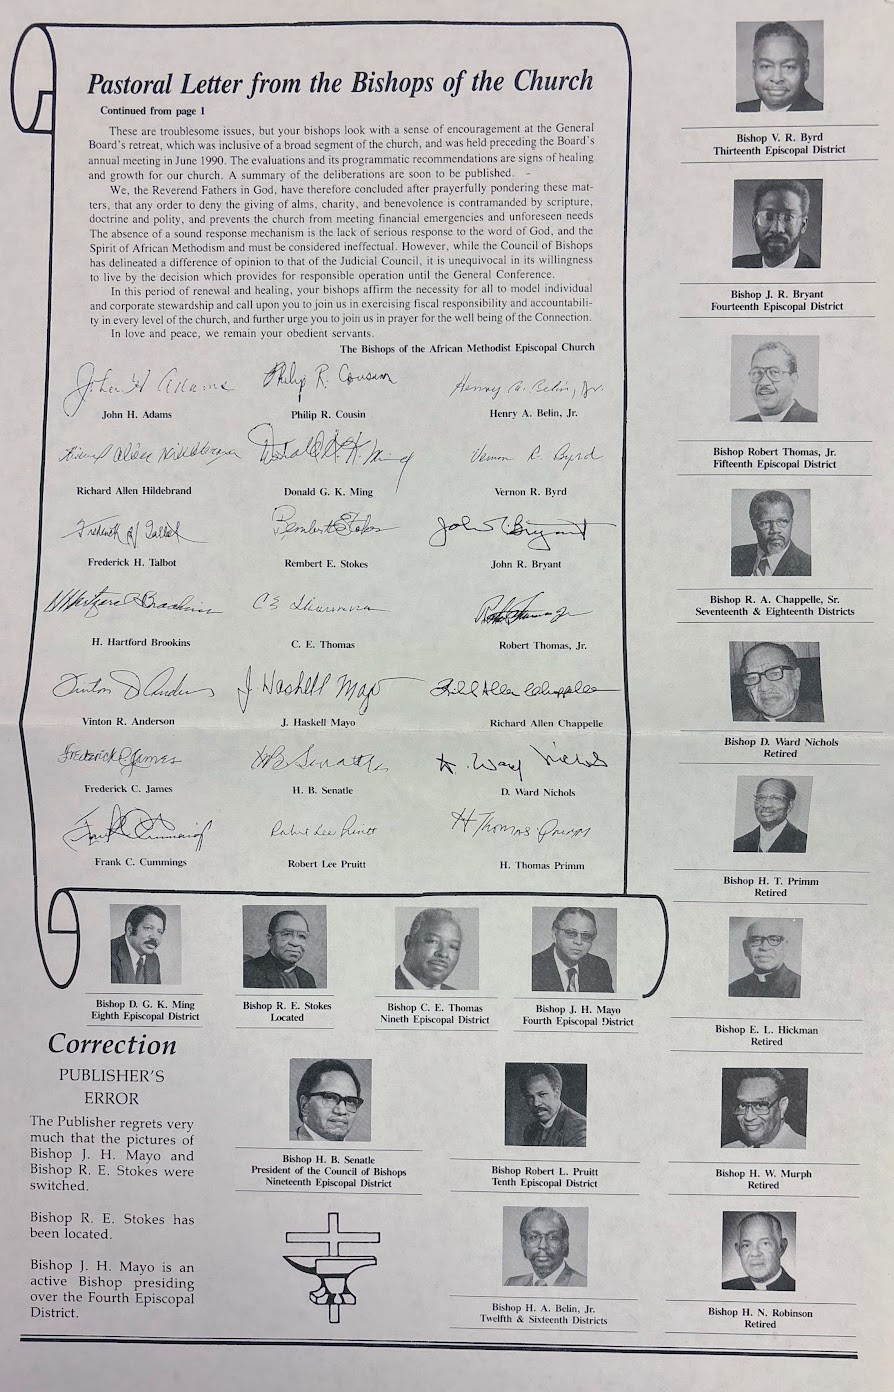 Pastoral Letter from the Bishops of the Church
Continued from page 1
These are troublesome issues, but your bishops look with a sense of encouragement at the General
Board's retreat, which was inclusive of a broad segment of the church, and was held preceding the Board's
annual meeting in June 1990. The evaluations and its programmatic recommendations are signs of healing
and growth for our church. A summary of the deliberations are soon to be published.
We, the Reverend Fathers in God, have therefore concluded after prayerfully pondering these mat-
ters, that any order to deny the giving of alms, charity, and benevolence is contramanded by scripture,
doctrine and polity, and prevents the church from meeting financial emergencies and unforeseen needs
The absence of a sound response mechanism is the lack of serious response to the word of God, and the
Spirit of African Methodism and must be considered ineffectual. However, while the Council of Bishops
has delineated a difference of opinion to that of the Judicial Council, it is unequivocal in its willingness
to live by the decision which provides for responsible operation until the General Conference.
In this period of renewal and healing, your bishops affirm the necessity for all to model individual
and corporate stewardship and call upon you to join us in exercising fiscal responsibility and accountabili-
ty in every level of the church, and further urge you to join us in prayer for the well being of the Connection.
In love and peace, we remain your obedient servants.
The Bishops of the African Methodist Episcopal Church
John H Adams
Philip R. Cousin
Henry A. Belin, Jr.
John H. Adams
Philip R. Cousin
Henry A. Belin, Jr.
Richard Allen Hildebrand
Donald G. K. Ming
Vernon R. Byrd
Richard Allen Hildebrand
Donald G. K. Ming
Vernon R. Byrd
Frederick H Talbot
Rembert E Stokes
John R. Bryant
Frederick H. Talbot
Rembert E. Stokes
John R. Bryant
H Hartford Brookins
C E Thomas
H. Hartford Brookins
C. E. Thomas
Robert Thomas, Jr.
Vinton R Anderson
J. Haskell Mayo
Richard Allen Chappelle
Vinton R. Anderson
J. Haskell Mayo
Richard Allen Chappelle
Frederick C James
H B Senatle
D. Ward Nichols
Frederick C. James
H. B. Senatle
D. Ward Nichols
Frank C Cummings
Robert Lee Pruitt
H Thomas Primm
Frank C. Cummings
Robert Lee Pruitt
H. Thomas Primm
Bishop V. R. Byrd
Thirteenth Episcopal District
Bishop J. R. Bryant
Fourteenth Episcopal District
Bishop Robert Thomas, Jr.
Fifteenth Episcopal District
Bishop R. A. Chappelle, Sr.
Seventeenth & Eighteenth Districts
Bishop D. Ward Nichols
Retired
Bishop H. T. Primm
Retired
Bishop E. L. Hickman
Retired
Bishop H. W. Murph
Retired
Bishop H. N. Robinson
Retired
Bishop D. G. K. Ming
Eighth Episcopal District
Bishop R. E. Stokes
Located
Bishop C. E. Thomas
Nineth Episcopal District
Bishop J. H. Mayo
Fourth Episcopal District
Bishop H. B. Senatle
President of the Council of Bishops
Nineteenth Episcopal District
Bishop Robert L. Pruitt
Tenth Episcopal District
Bishop H. A. Belin, Jr.
Twelfth & Sixteenth Districts
Correction
PUBLISHER'S
ERROR
The Publisher regrets very
much that the pictures of
Bishop J. H. Mayo and
Bishop R. E. Stokes were
switched.
Bishop R. E. Stokes has
been located.
Bishop J. H. Mayo is an
active Bishop presiding
over the Fourth Episcopal
District.